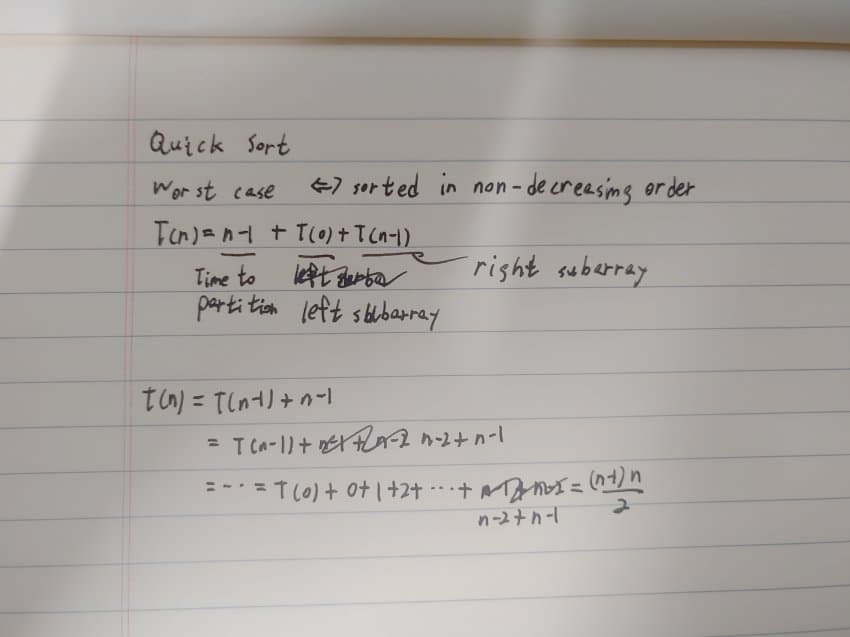 Quick Sort
Worst case ⇔ sorted in non-decreasing order
T(n) = n-1 + T(0) + T(n-1)
Time to right subarray
partition left subarray
T(n) = T(n-1) + n-1
= T(n-1) + n-2 + n-1
= ... = T(0) + 0+1+2+ ... + = (n-1)n / 2
n-2 + n-1